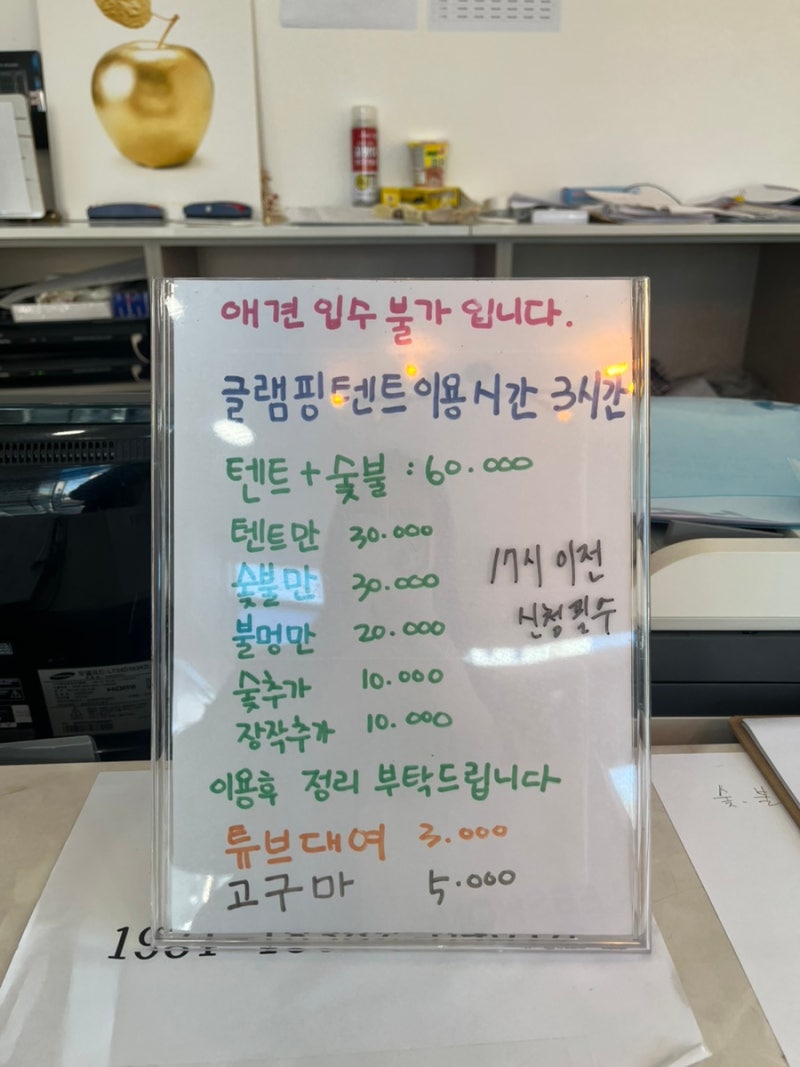 애견 입수 불가 입니다.
글램핑텐트이용시간 3시간
텐트 + 숯불 : 60.000
텐트만 30.000
숯불만 30.000
17시 이전
신청필수
불멍만 20.000
숯추가 10.000
장작추가 10.000
이용후 정리 부탁드립니다
튜브대여 3.000
고구마 5.000